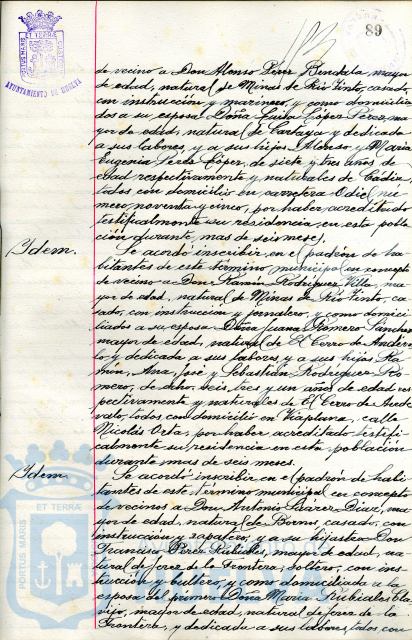 89
PORTUS MARIS ET TERRÆ CUSTODIA
AYUNTAMIENTO DE HUELVA
de vecino a Don Alonso Pérez Bendala mayor
de edad, natural de Minas de Rio Tinto, casado
con instruccion y marinero, y como domicilia
dos a su esposa Doña Luisa López Pérez, ma
yor de edad, natural de Cartaya y dedicada
a sus labores, y a sus hijos Alonso y Maria
Eugenia Pérez López, de siete y tres años de
edad respectivamente y naturales de Cadiz,
todos con domicilio en carretera Odiel nú
mero noventa y cinco, por haber acreditado
testificalmente su residencia en esta pobla
ción durante mas de seis meses.
Idem. Se acordó inscribir en el padrón de ha
bitantes de este termino municipal en concepto
de vecino a Don Ramón Rodriguez Villa, ma
yor de edad, natural de Minas de Rio Tinto, ca
sado, con instruccion y jornalero, y como domici
liados a su esposa Doña Juana Romero Sanchez
mayor de edad, natural de El Cerro de Andéva
lo y dedicada a sus labores y a sus hijos Ra
món, Ana, José y Sebastián Rodriguez Ro
mero, de ocho, seis, tres y un años de edad res
pectivamente y naturales de El Cerro de Andé
valo, todos con domicilio en Viaplana, calle
Nicolás Orta, por haber acreditado testifi
calmente su residencia en esta población
durante mas de seis meses.
Idem. Se acordó inscribir en el padrón de habi
tantes de este termino municipal en concepto
de vecinos a Don Antonio Suarez Diaz, ma
yor de edad, natural de Bornos, casado, con
instruccion y zapatero, y a su hijastro Don
Francisco Pérez Rubiales, mayor de edad, na
tural de Jerez de la Frontera, soltero, con ins
trucción y bultero, y como domiciliada a la
esposa del primero Doña Maria Rubiales Cla
vijo, mayor de edad, natural de Jerez de la
Frontera, y dedicada a sus labores, todos con
PORTUS MARIS ET TERRÆ